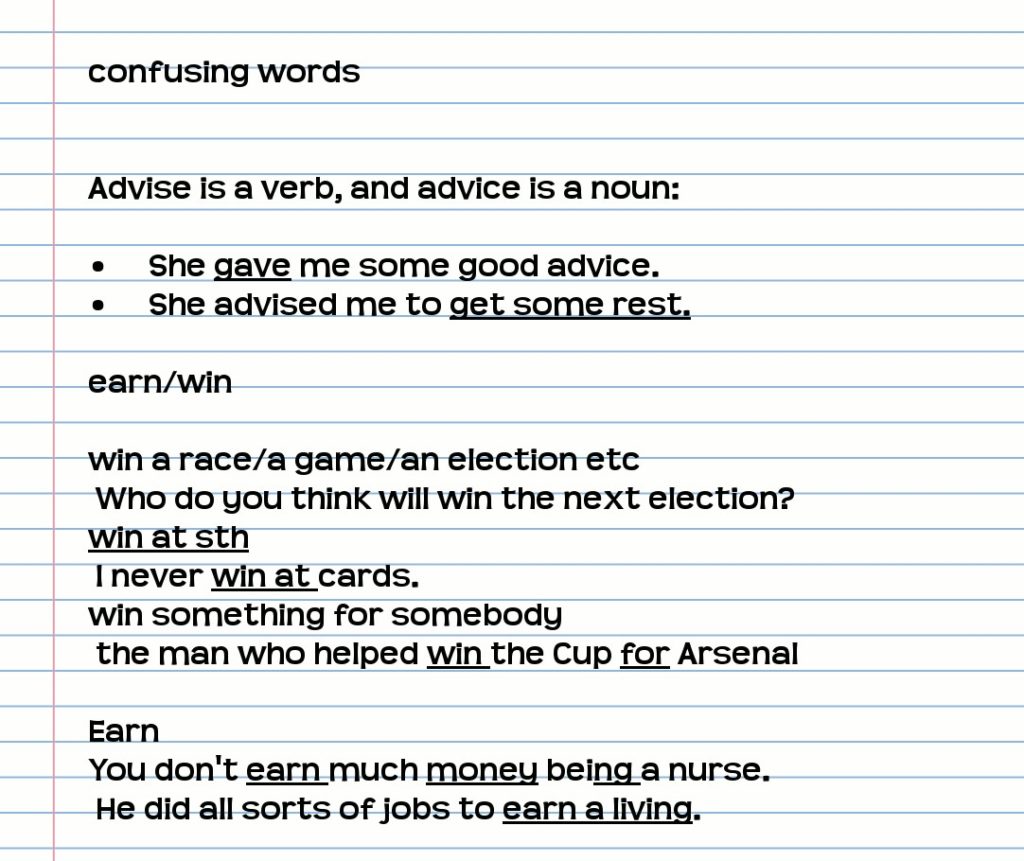 confusing words
Advise is a verb, and advice is a noun:
• She gave me some good advice.
• She advised me to get some rest.
earn/win
win a race/a game/an election etc
Who do you think will win the next election?
win at sth
I never win at cards.
win something for somebody
the man who helped win the Cup for Arsenal
Earn
You don't earn much money being a nurse.
He did all sorts of jobs to earn a living.